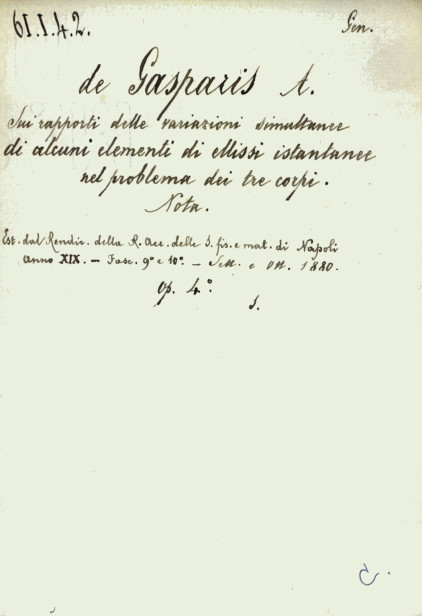 61.1.4.2.
Gen.
de Gasparis A.
Sui rapporti delle variazioni simultanee
di alcuni elementi di ellissi istantanee
nel problema dei tre corpi.
Nota.
Est. dal Rendic. della R. Acc. delle S. fis. e mat. di Napoli
Anno XIX. — Fasc. 9º e 10º. — Sett. e Ott. 1880.
Op. 4.º